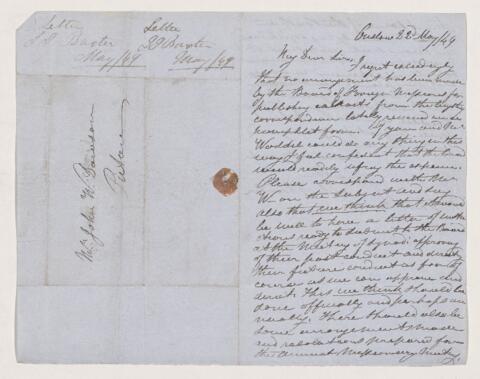 Letter
J J Baxter
May/49
Letter
JJ Baxter
May/49
Mr John W. Dawson
Pictou
Onslow 22d May/49
My Dear Sir,
I regret exceedingly
that no arrangement has been made
by the Board of Foreign Missions for
publishing extracts from the
correspondence lately received in
pamphlet form. If you and Mr
Waddel could do any thing in this
way I feel confident that the Board
would readily defray the expense.
Please correspond with Mr
W. on the subject and say
also that we think that it would
be well to have a letter of instr
uctions ready to submit to the Board
at the Meeting of Synod: approving
of their past conduct and directing
their future conduct as far of
course as we can approve and
direct. This we think should be
done officially and perhaps an
nually. There should also be
some arrangement made
and resolutions prepared for
the Annual Missionary Meeting.